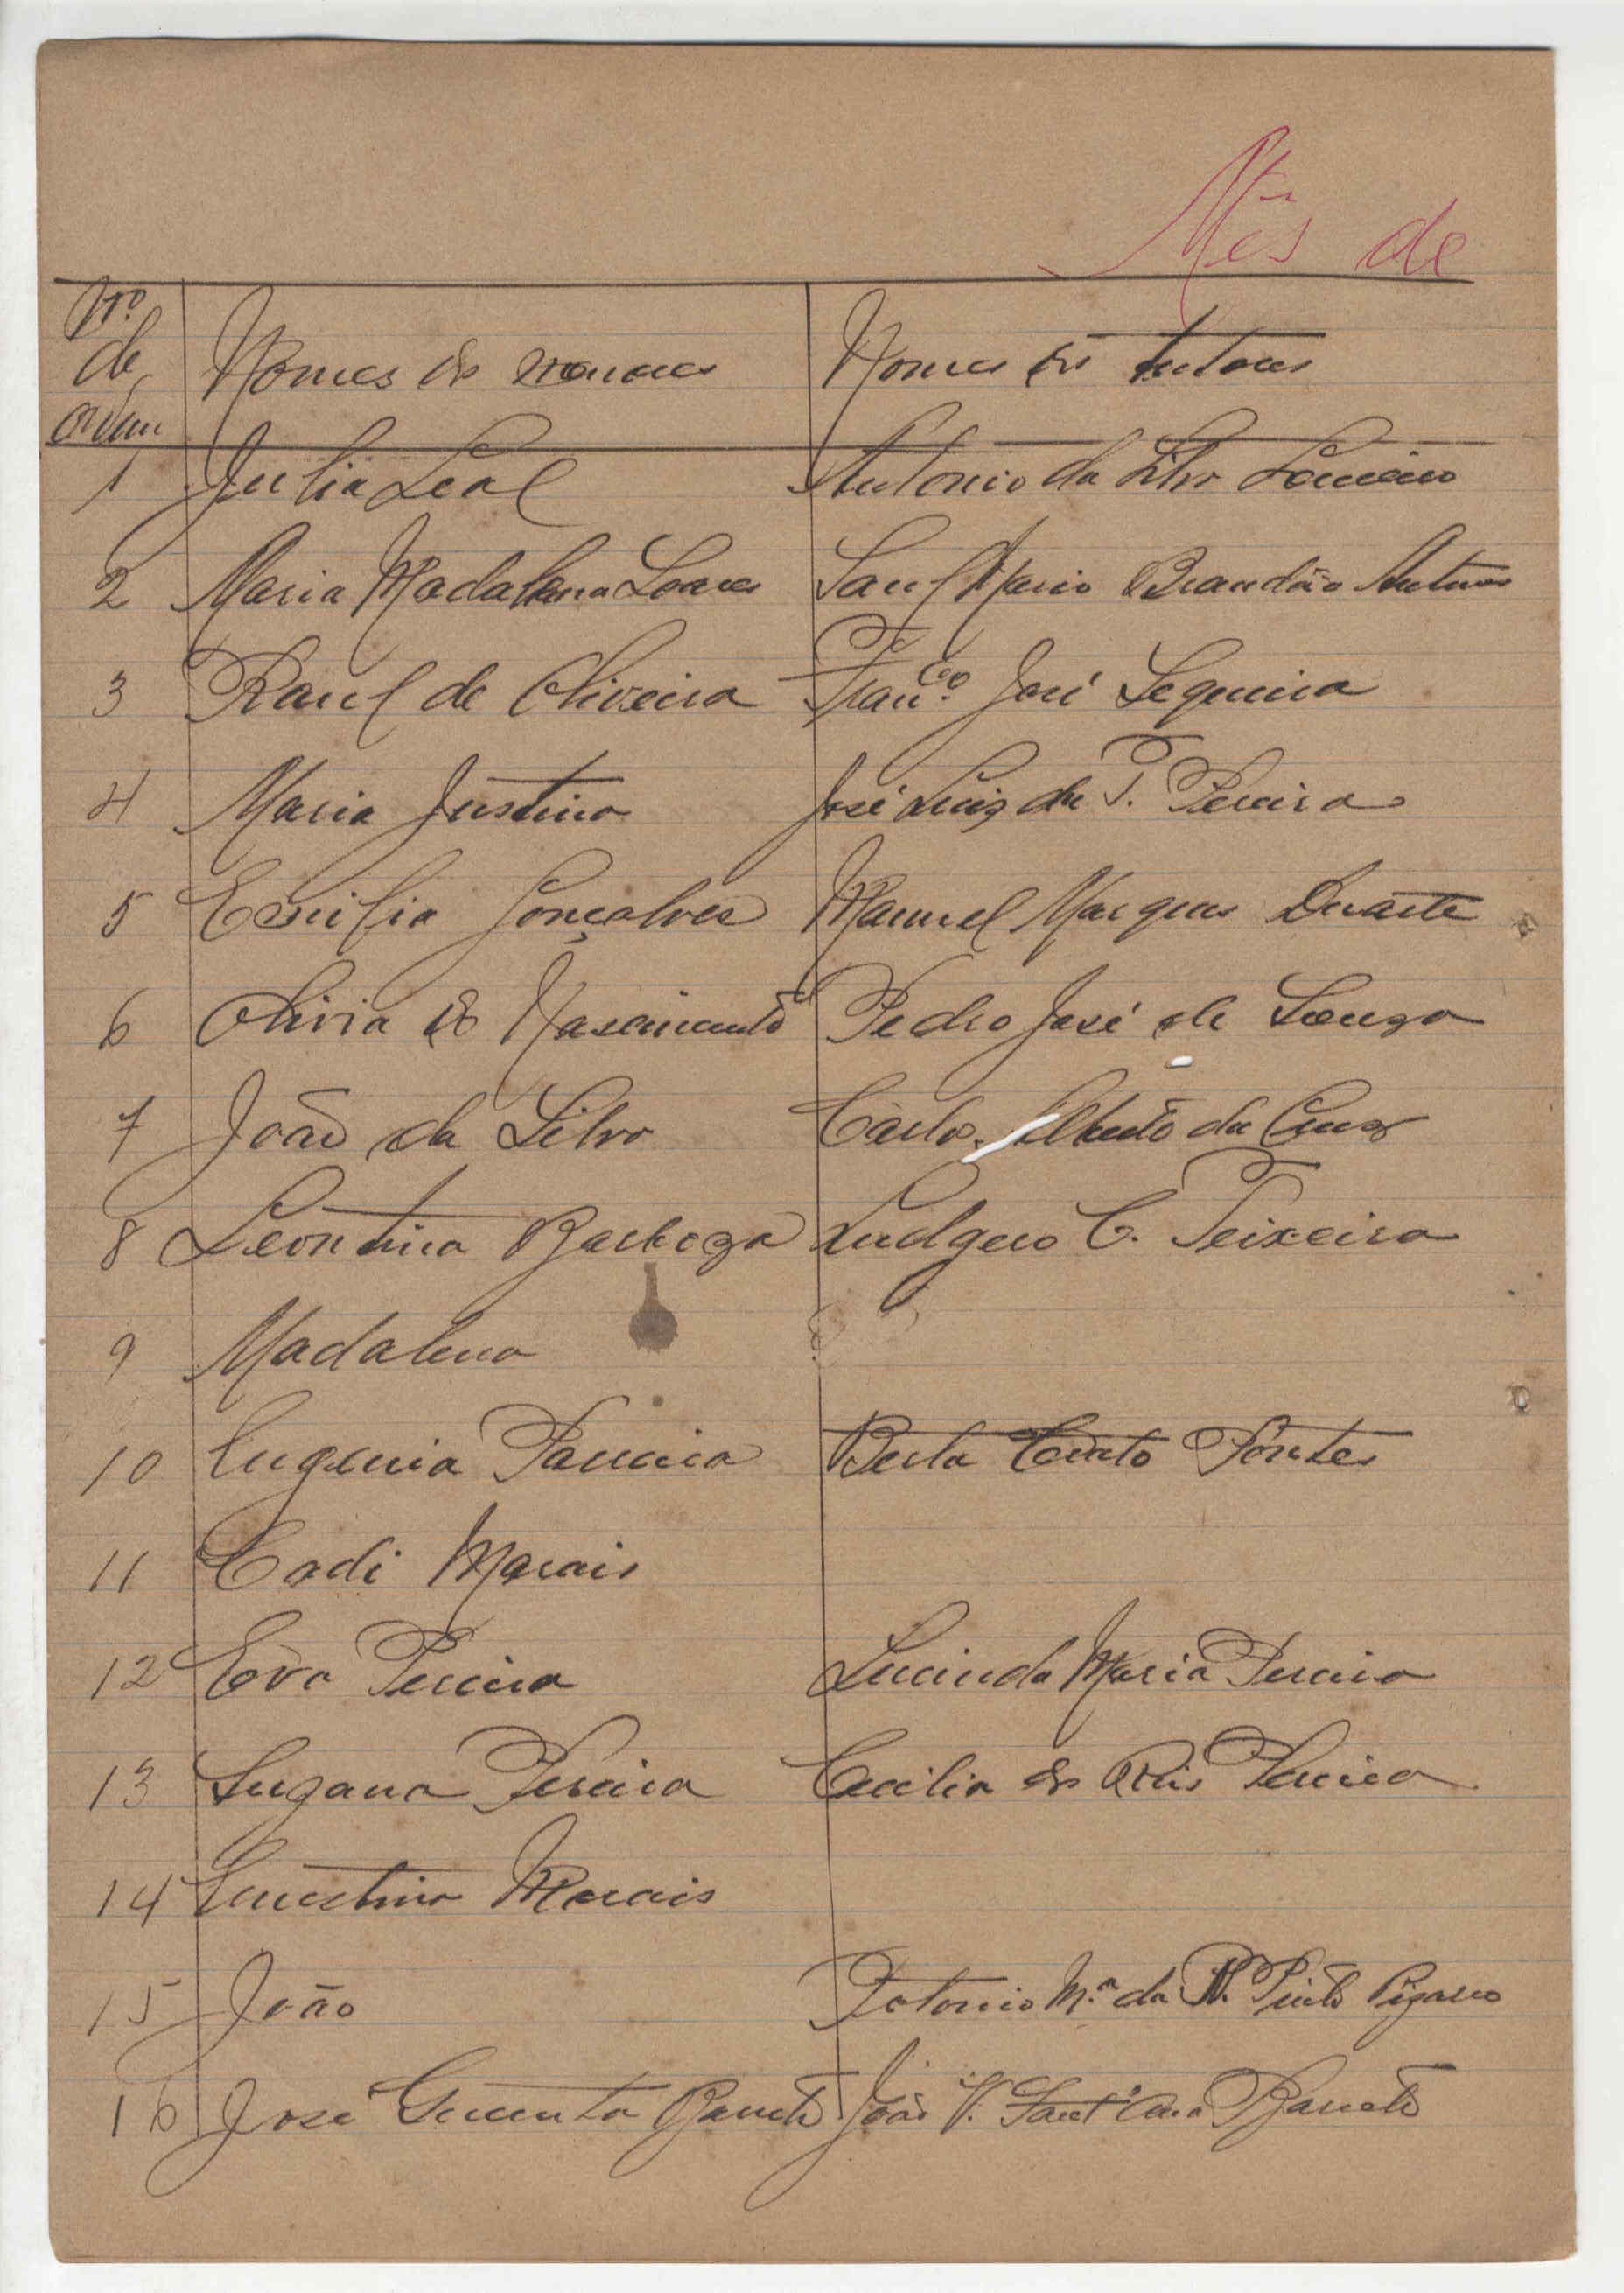 Mês de
Nº
de
ordem
Nomes dos menores
Nomes dos tutores
1 Julia Leal Antonio da Silva Loureiro
2 Maria Madalena Soares Saul Mario Brandão Antunes
3 Raul de Oliveira Franco. José Sequeira
4 Maria Justina José Luiz de T. Pereira
5 Emilia Gonçalves Manuel Marques Duarte
6 Olivia do Nascimento Pedro José de Souza
7 João da Silva Carlos Alberto da Cruz
8 Leontina Barboza Ludgero C. Teixeira
9 Madalena
10 Eugenia Parreira Berta Couto Fontes
11 Cadi Morais
12 Eva Pereira Lucinda Maria Pereira
13 Suzana Pereira Cecilia dos Reis Pereira
14 Ernestina Morais
15 João Antonio M.ª da N. Pinto Pizarro
16 José Barreto João V. Sant'Ana Barreto